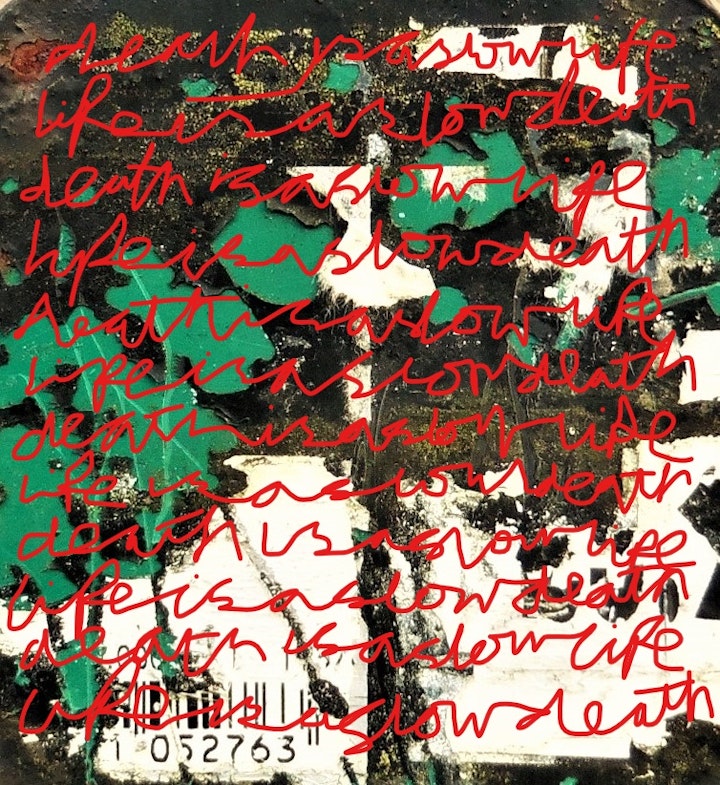 death is a slow life
life is a slow death
death is a slow life
life is a slow death
death is a slow life
life is a slow death
death is a slow life
life is a slow death
death is a slow life
life is a slow death
death is a slow life
life is a slow death
1 052763